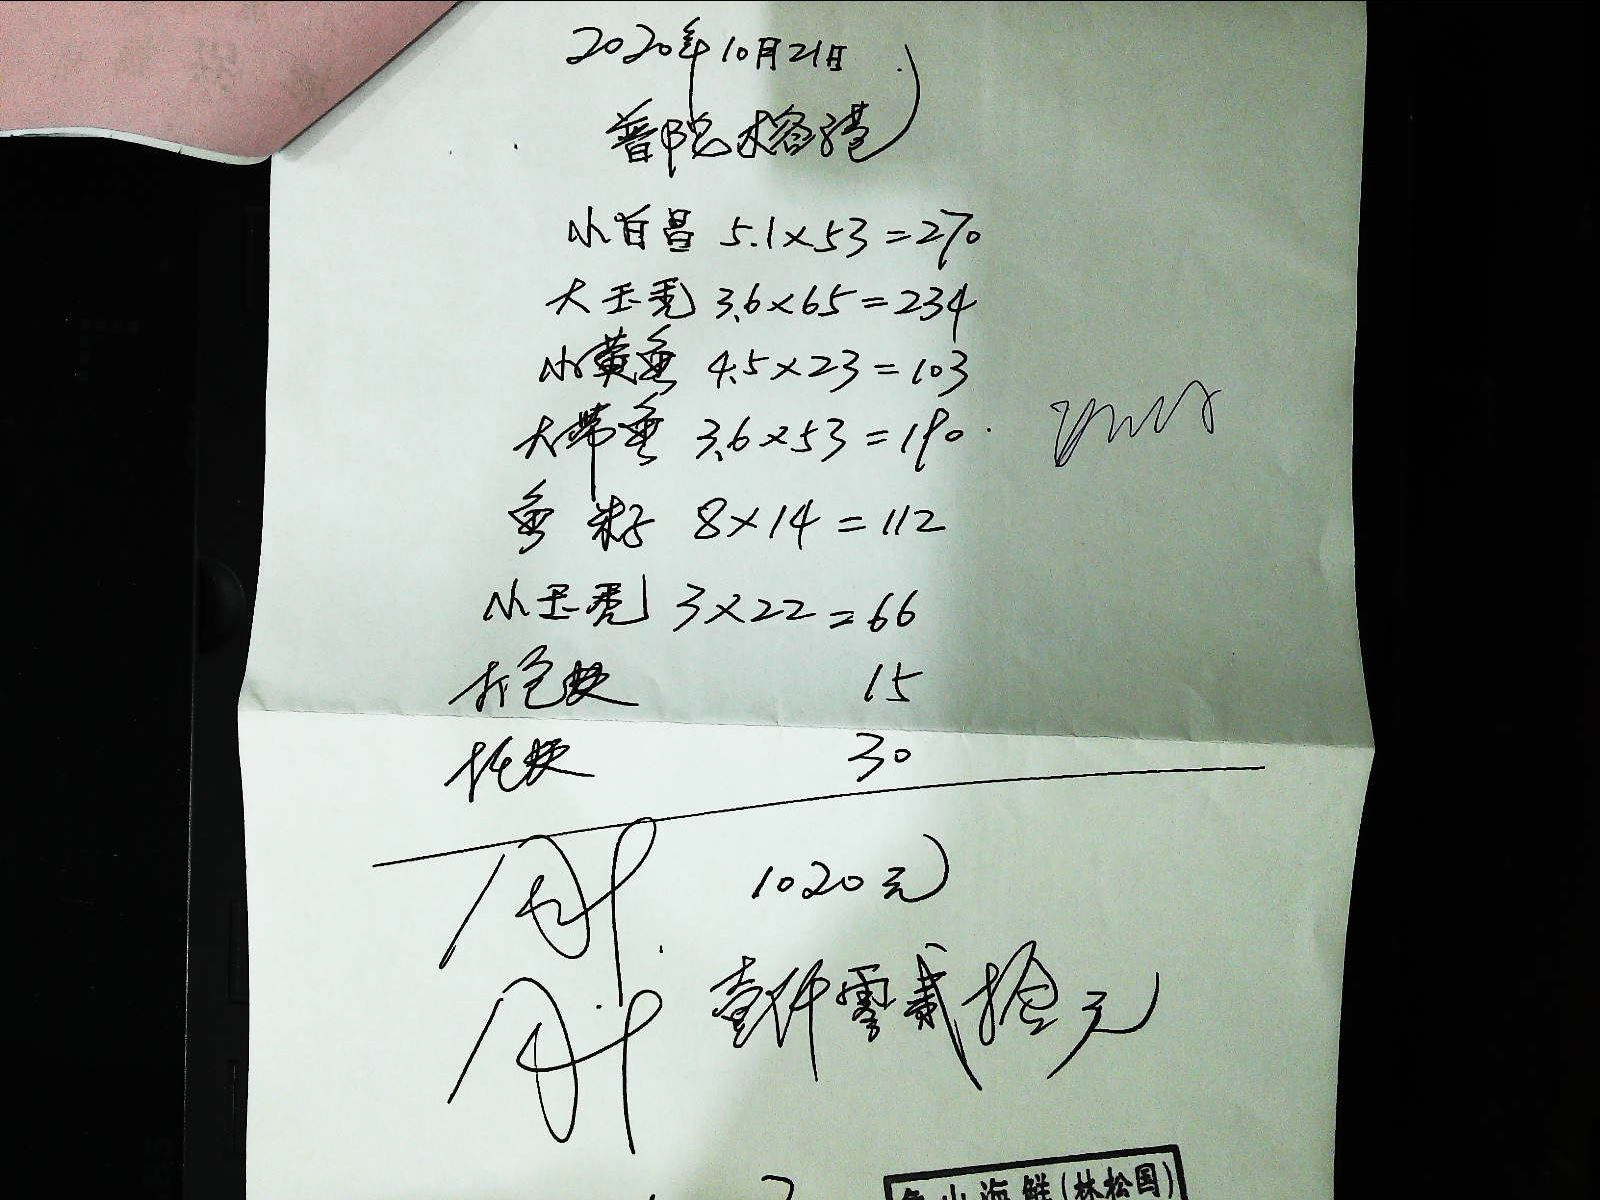 2020年10月21日
普陀水榕港
小白昌 5.1×53=270
大玉秃 3.6×65=234
小黄鱼 4.5×23=103
大带鱼 3.6×53=190
鱼籽 8×14=112
小玉秃 3×22=66
打包费 15
托费 30
1020元
壹仟零贰拾元
象山海鲜(林松国)